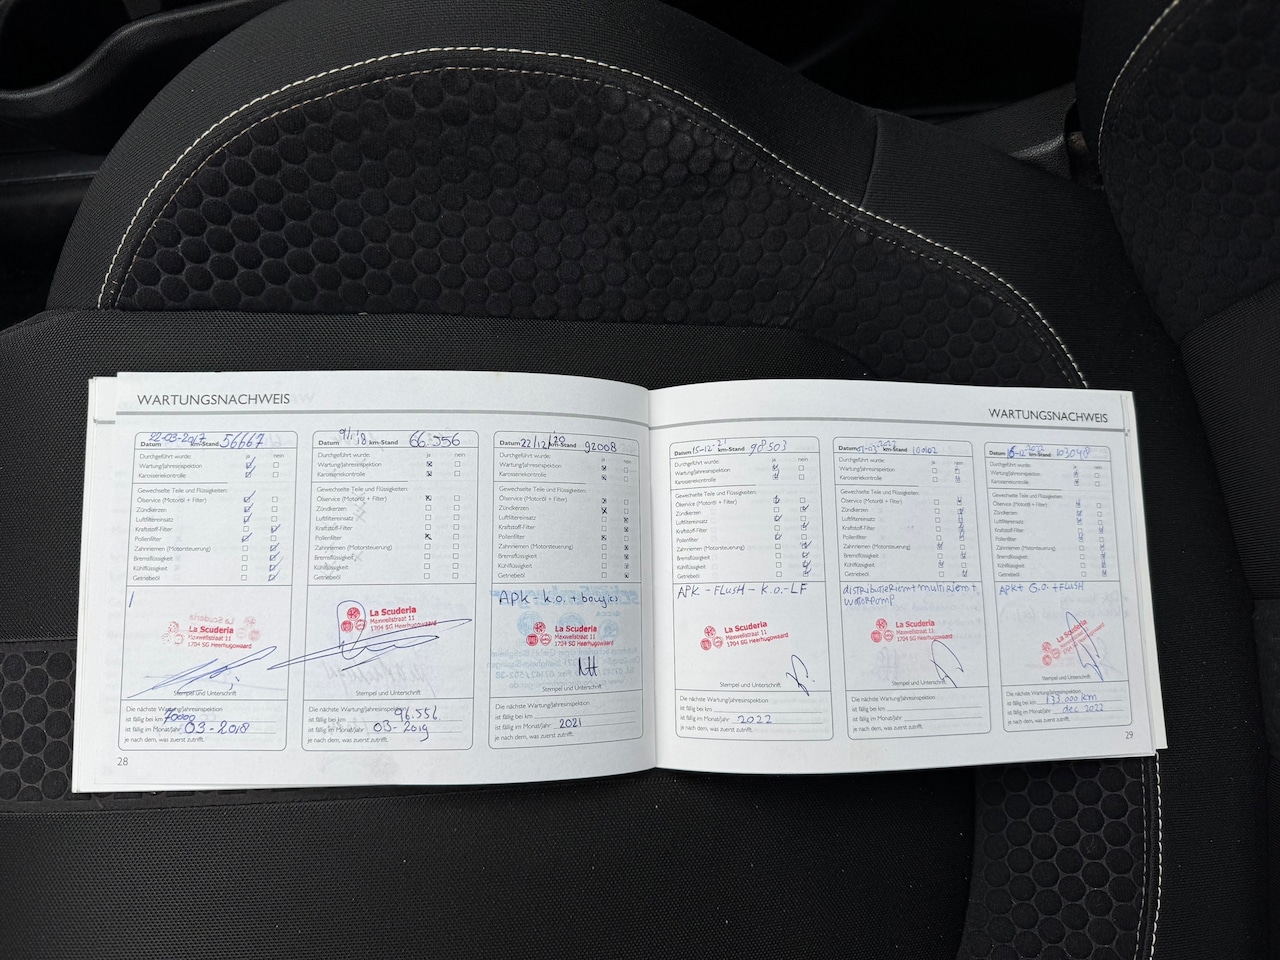 WARTUNGSNACHWEIS
Datum 22-03-2017 km-Stand 56667
Durchgeführt wurde: ja nein
Wartung/Jahresinspektion
Karosseriekontrolle
Gewechselte Teile und Flüssigkeiten:
Ölservice (Motoröl + Filter)
Zündkerzen
Luftfiltereinsatz
Kraftstoff-Filter
Pollenfilter
Zahnriemen (Motorsteuerung)
Bremsflüssigkeit
Kühlflüssigkeit
Getriebeöl
La Scuderia
Maxwellstraat 11
1704 SG Heerhugowaard
Stempel und Unterschrift
Die nächste Wartung/Jahresinspektion
ist fällig bei km 70000
ist fällig im Monat/Jahr 03-2018
je nach dem, was zuerst zutrifft.
28
Datum 9/1/'18 km-Stand 66.556
Durchgeführt wurde: ja nein
Wartung/Jahresinspektion
Karosseriekontrolle
Gewechselte Teile und Flüssigkeiten:
Ölservice (Motoröl + Filter)
Zündkerzen
Luftfiltereinsatz
Kraftstoff-Filter
Pollenfilter
Zahnriemen (Motorsteuerung)
Bremsflüssigkeit
Kühlflüssigkeit
Getriebeöl
La Scuderia
Maxwellstraat 11
1704 SG Heerhugowaard
Stempel und Unterschrift
Die nächste Wartung/Jahresinspektion
ist fällig bei km 96.556
ist fällig im Monat/Jahr 03-2019
je nach dem, was zuerst zutrifft.
Datum 22/12/'20 km-Stand 92008
Durchgeführt wurde: ja nein
Wartung/Jahresinspektion
Karosseriekontrolle
Gewechselte Teile und Flüssigkeiten:
Ölservice (Motoröl + Filter)
Zündkerzen
Luftfiltereinsatz
Kraftstoff-Filter
Pollenfilter
Zahnriemen (Motorsteuerung)
Bremsflüssigkeit
Kühlflüssigkeit
Getriebeöl
APK - k.o. + bougies
La Scuderia
Maxwellstraat 11
1704 SG Heerhugowaard
Stempel und Unterschrift
Die nächste Wartung/Jahresinspektion
ist fällig bei km
ist fällig im Monat/Jahr 2021
je nach dem, was zuerst zutrifft.
WARTUNGSNACHWEIS
Datum 15-12-'21 km-Stand 98503
Durchgeführt wurde: ja nein
Wartung/Jahresinspektion
Karosseriekontrolle
Gewechselte Teile und Flüssigkeiten:
Ölservice (Motoröl + Filter)
Zündkerzen
Luftfiltereinsatz
Kraftstoff-Filter
Pollenfilter
Zahnriemen (Motorsteuerung)
Bremsflüssigkeit
Kühlflüssigkeit
Getriebeöl
APK - FLUSH - K.O. - LF
La Scuderia
Maxwellstraat 11
1704 SG Heerhugowaard
Stempel und Unterschrift
Die nächste Wartung/Jahresinspektion
ist fällig bei km
ist fällig im Monat/Jahr 2022
je nach dem, was zuerst zutrifft.
Datum km-Stand
Durchgeführt wurde: ja nein
Wartung/Jahresinspektion
Karosseriekontrolle
Gewechselte Teile und Flüssigkeiten:
Ölservice (Motoröl + Filter)
Zündkerzen
Luftfiltereinsatz
Kraftstoff-Filter
Pollenfilter
Zahnriemen (Motorsteuerung)
Bremsflüssigkeit
Kühlflüssigkeit
Getriebeöl
distributieriem + multiriem +
waterpomp
La Scuderia
Maxwellstraat 11
1704 SG Heerhugowaard
Stempel und Unterschrift
Die nächste Wartung/Jahresinspektion
ist fällig bei km
ist fällig im Monat/Jahr
je nach dem, was zuerst zutrifft.
Datum km-Stand 103048
Durchgeführt wurde: ja nein
Wartung/Jahresinspektion
Karosseriekontrolle
Gewechselte Teile und Flüssigkeiten:
Ölservice (Motoröl + Filter)
Zündkerzen
Luftfiltereinsatz
Kraftstoff-Filter
Pollenfilter
Zahnriemen (Motorsteuerung)
Bremsflüssigkeit
Kühlflüssigkeit
Getriebeöl
APK + G.O. + FLUSH
La Scuderia
Maxwellstraat 11
1704 SG Heerhugowaard
Stempel und Unterschrift
Die nächste Wartung/Jahresinspektion
ist fällig bei km 133.000 km
ist fällig im Monat/Jahr dec 2022
je nach dem, was zuerst zutrifft.
29